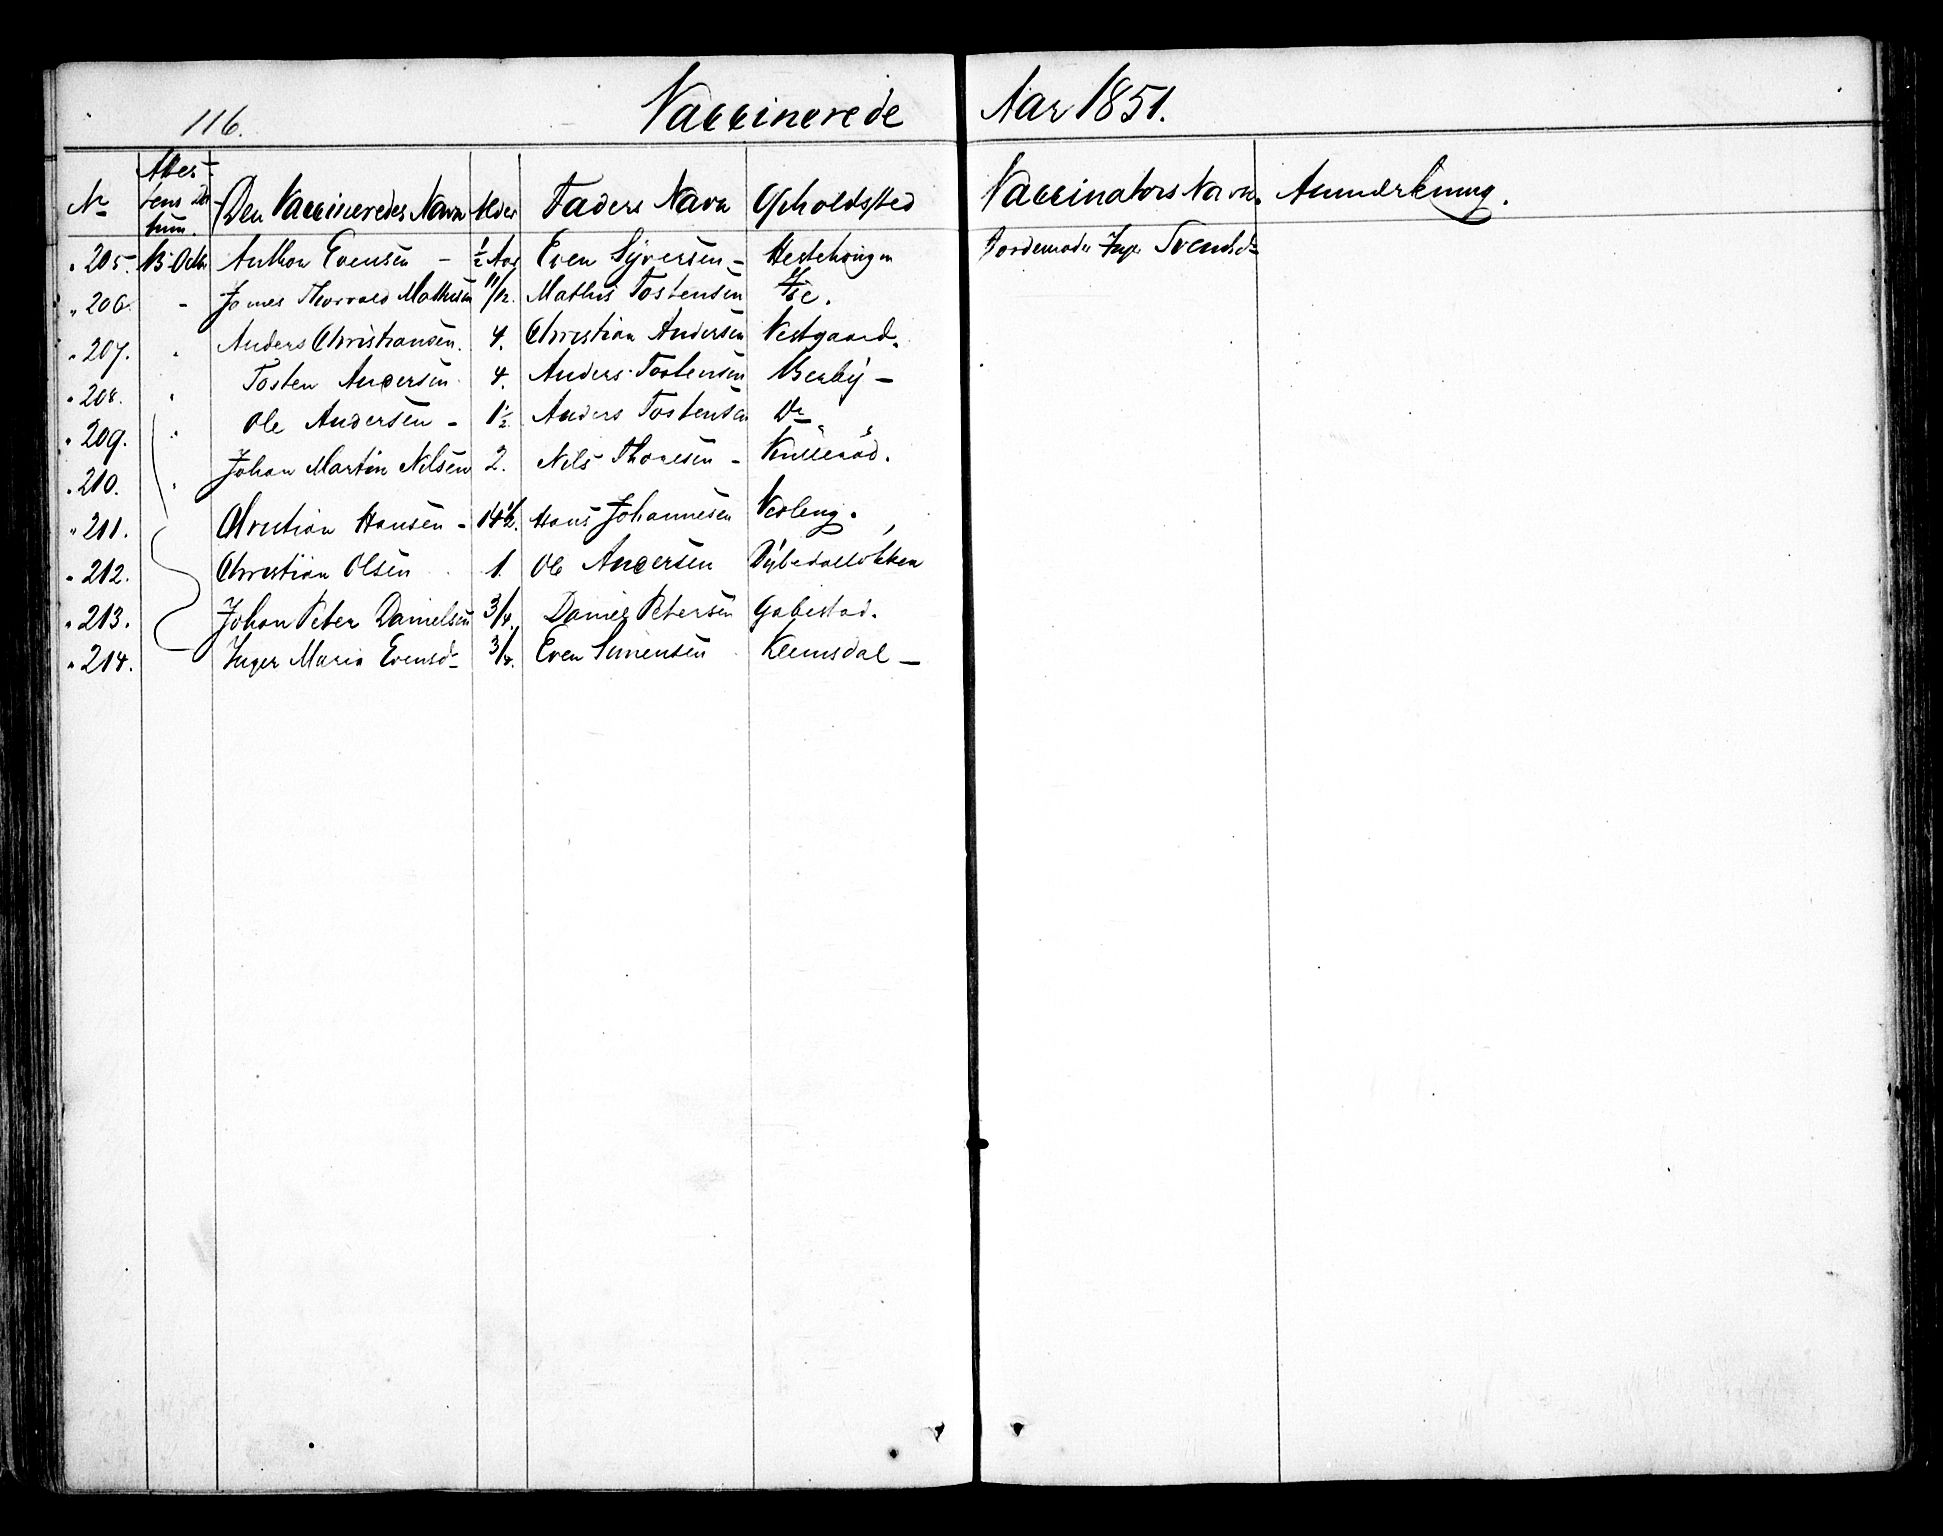 116. Vaccinerede Aar 1851.
No Attestens Datum. Den Vaccineredes Navn Alder Faders Navn Opholdsted Vaccinators Navn. Anmærkning.
205. 13 Octbr Anthon Evensen - 1/2 Aar Even Syversen - Jordemoder Inger Svendsd
206. - Thorvald Mathisen 11/12. Mathis Tostensen
207. " Anders Christiansen. 4. Christian Andersen Vestgaard.
208. " Tosten Andersen 4. Anders Tostensen Berby -
209. " Ole Andersen - 1 1/2 Anders Tostensen Do
210. " Johan Martin Nilsen 2. Nils Thoresen -
211. Christian Hansen - Hans Johannesen
212. Christian Olsen 1. Ole Andersen Dybedalløkken
213. Johan Peter Danielsen 3/4. Daniel Petersen Gabestad.
214. Inger Maria Evensd 3/4. Even Simensen Klemsdal -